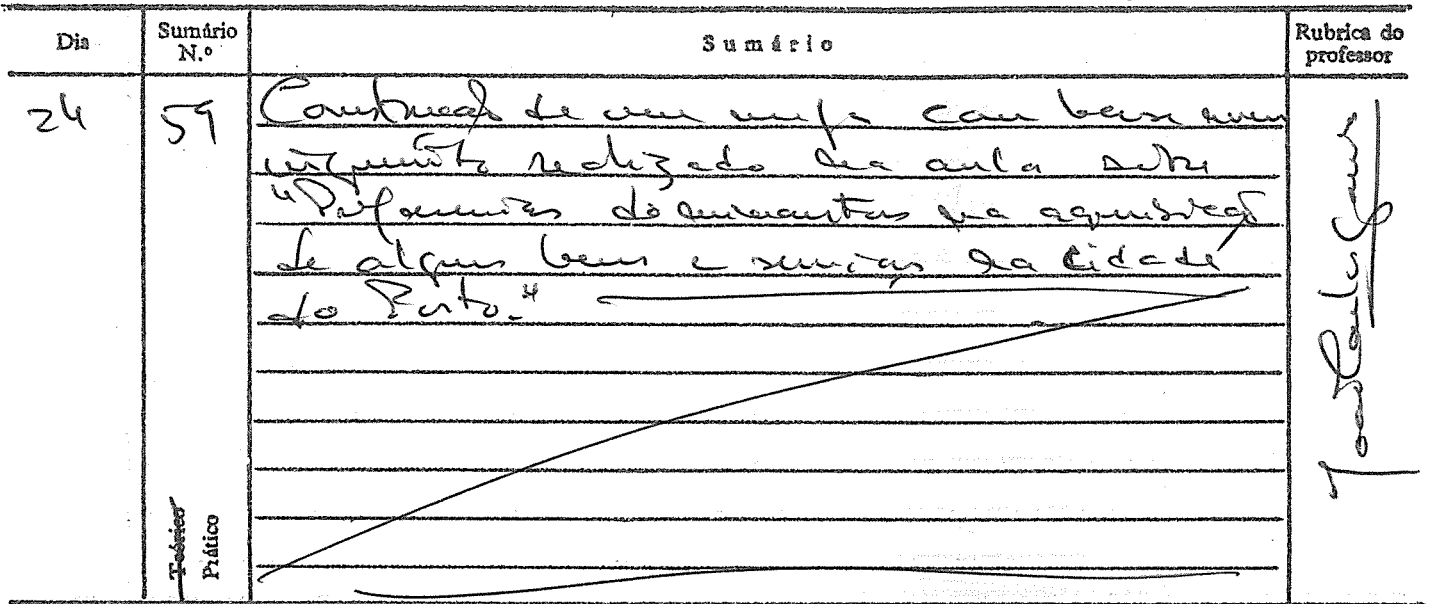 Dia
Sumário N.º
Sumário
Rubrica do professor
24
59
Construção de um mapa com base num
inquérito realizado na aula sobre
"Preferências dominantes na aquisição
de alguns bens e serviços na cidade
do Porto."
Teórico
Prático